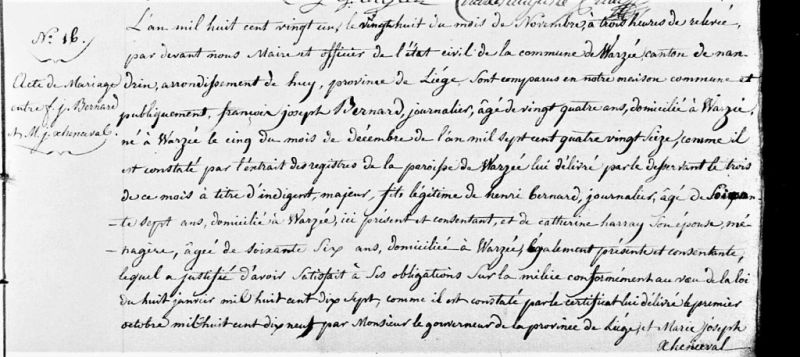 N.° 16.
Acte de Mariage
entre f. j. Bernard
et M. j. xheneval.
L'an mil huit cent vingt un, le vingt huit du mois de Novembre, à trois heures de relevée,
par devant nous Maire et officier de l'état civil de la commune de Warzée, canton de nan-
drin, arrondissement de huy, province de Liége, sont comparus en notre maison commune et
publiquement, françois joseph Bernard, journalier, âgé de vingt quatre ans, domicilié à Warzée,
né à Warzée le cinq du mois de décembre de l'an mil sept cent quatre vingt seize, comme il
est constaté par l'extrait des registres de la paroisse de Warzée lui délivré par le desservant le trois
de ce mois à titre d'indigent, majeur, fils légitime de henri Bernard, journalier, âgé de soixan-
-te sept ans, domicilié à Warzée, ici présent et consentant, et de catherine harray son épouse, mé-
-nagère, âgée de soixante six ans, domiciliée à Warzée, également présente et consentante,
lequel a justifié d'avoir satisfait à ses obligations sur la milice conformément au vœu de la loi
du huit janvier mil huit cent dix sept, comme il est constaté par le certificat lui délivré le premier
octobre mil huit cent dix neuf par Monsieur le gouverneur de la province de Liége, et Marie joseph
xheneval